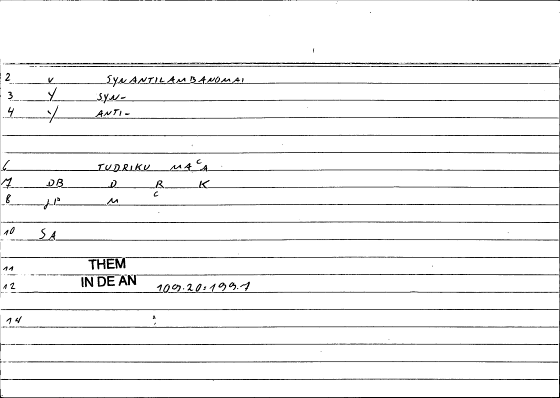 2 v SYNANTILAMBANOMAI
3 y SYN-
4 y ANTI-
6 TUDRIKU MACA
7 DB D R K
8 M C
10 SA
11 THEM
12 IN DE AN 109.20:199.1
14